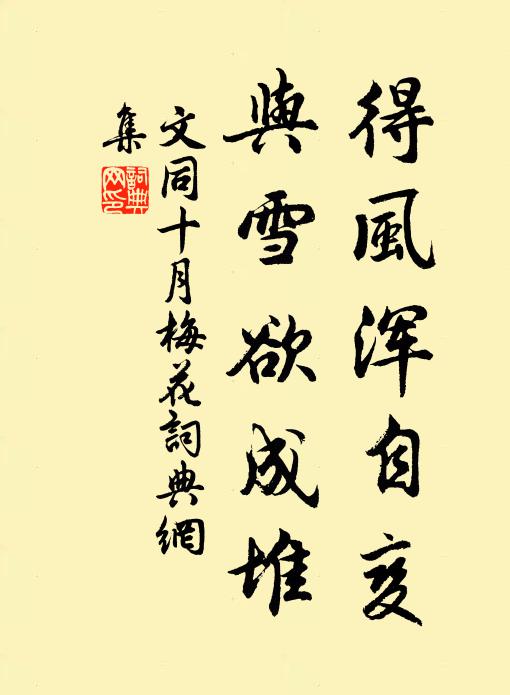 得風渾自变
與雪欲成堆
文同十月梅花詞典網
集
詞典
网印